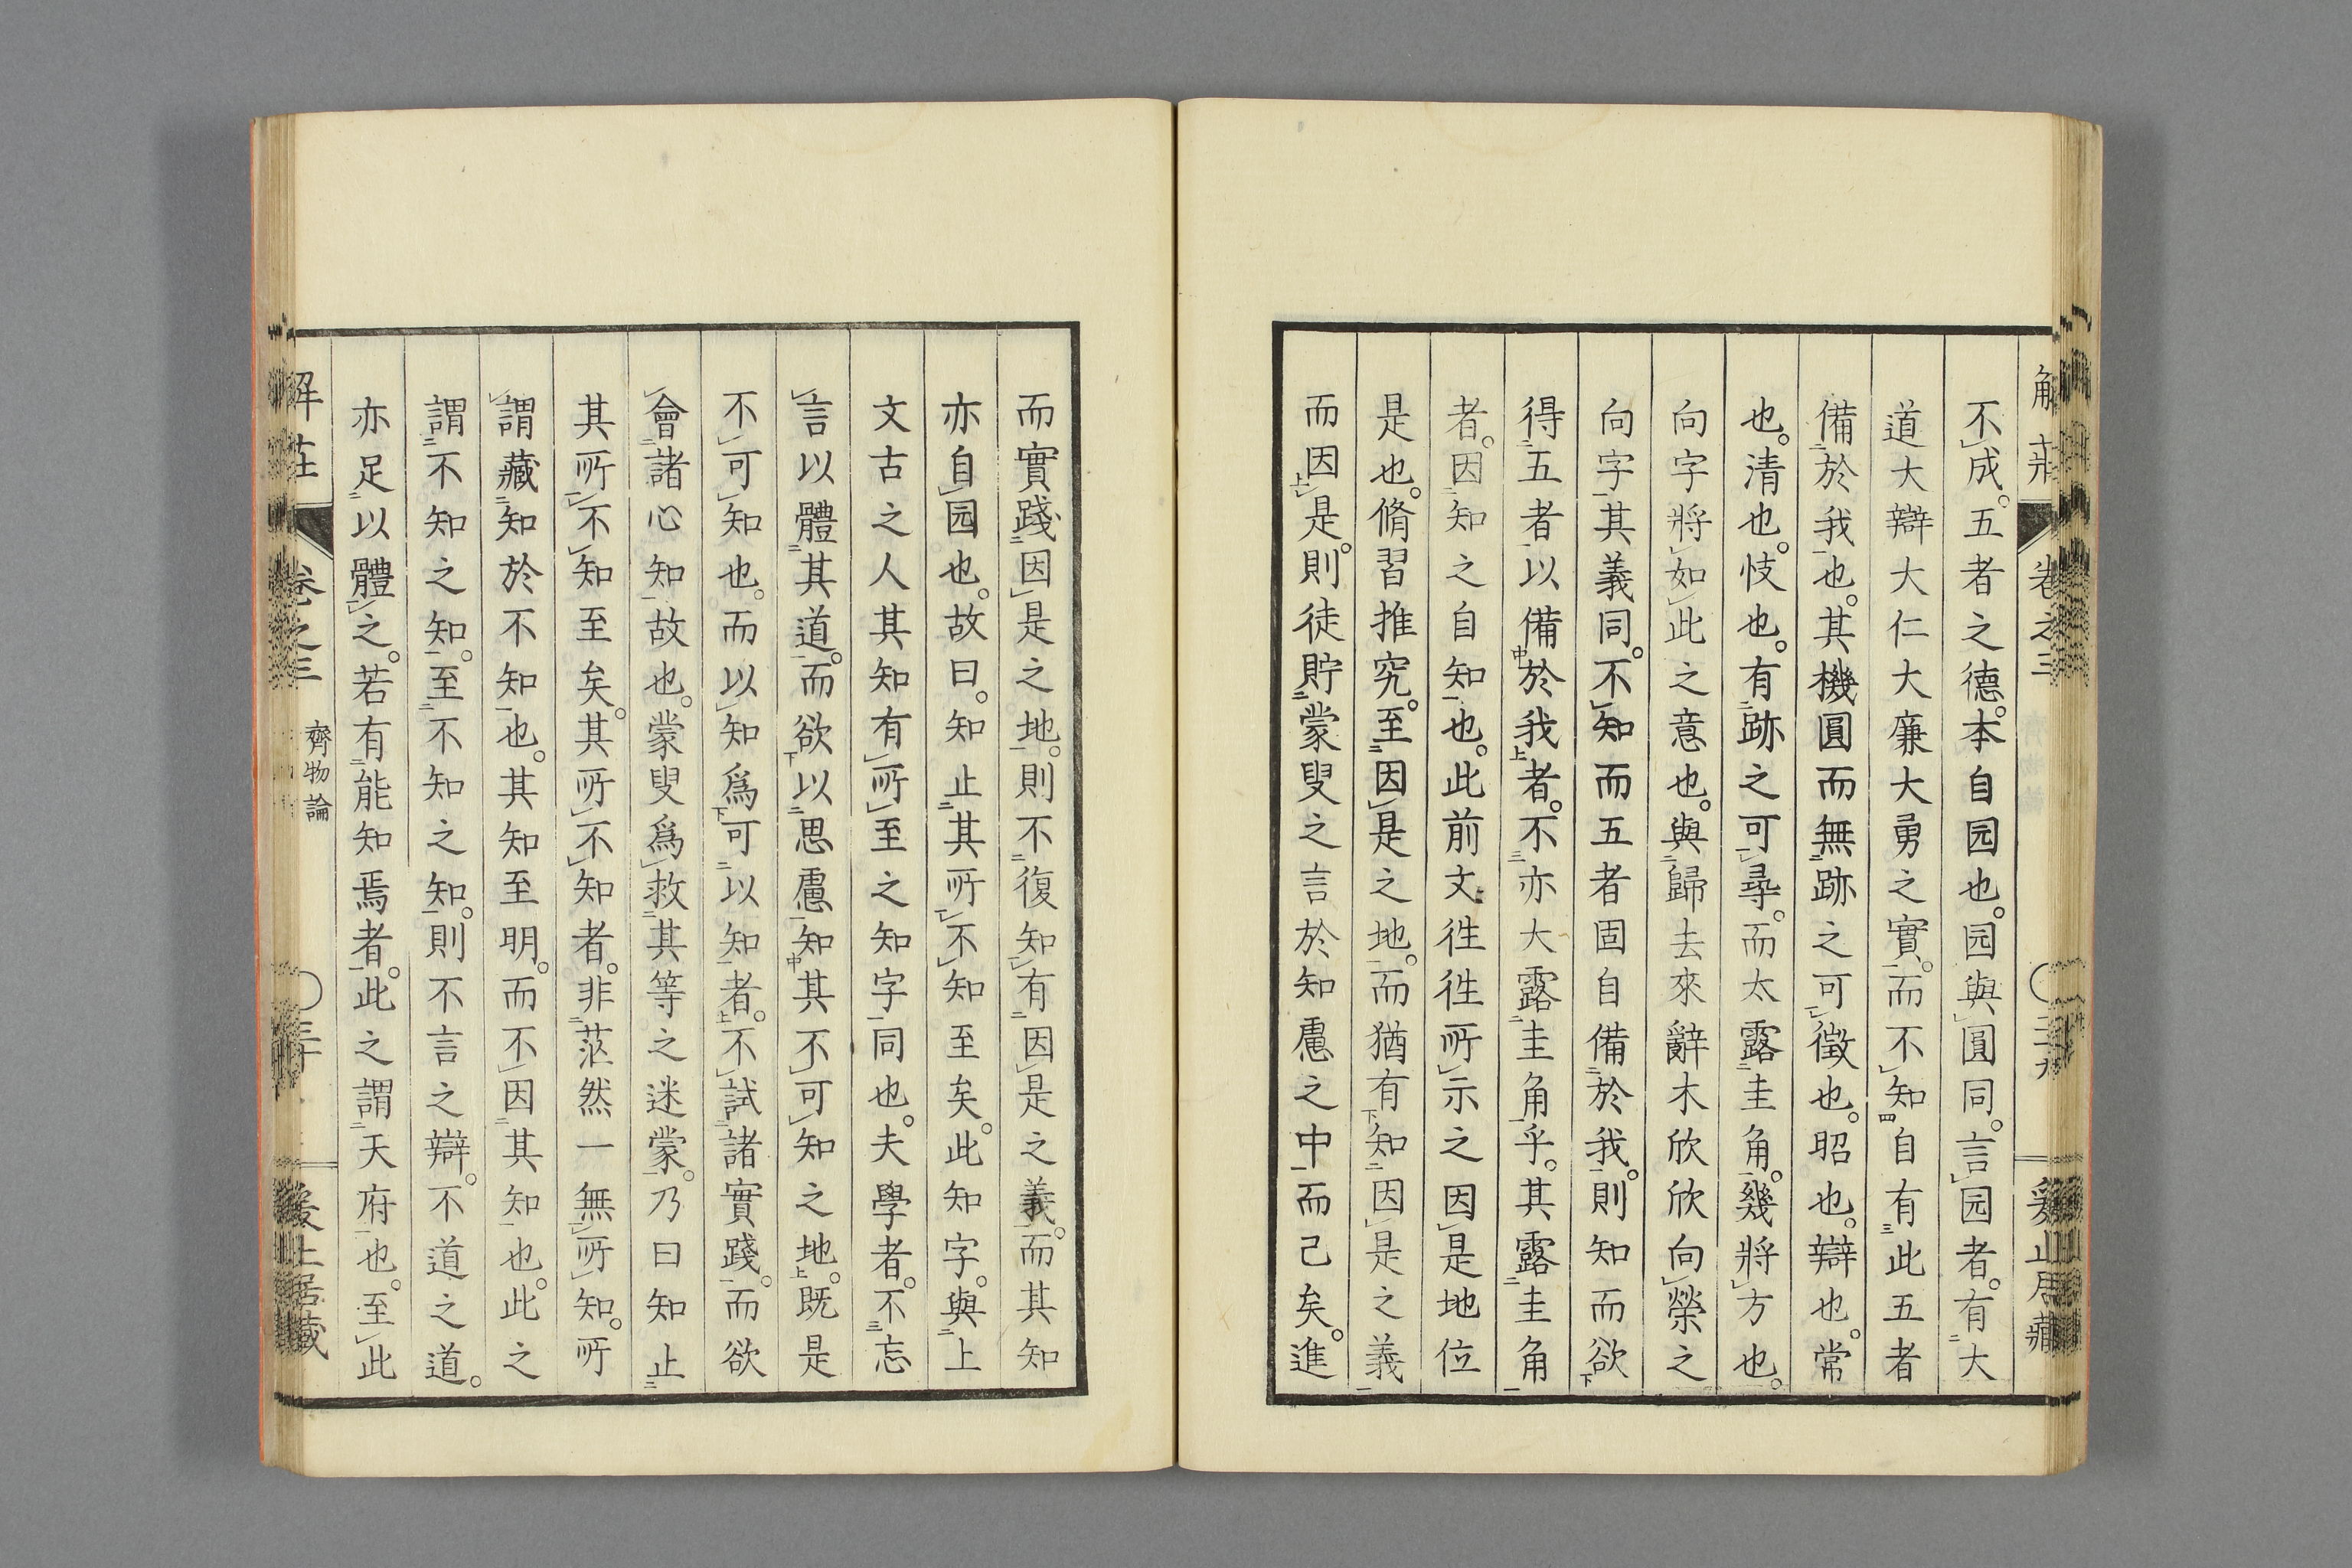 不成。五者之德。本自园也。园與圓同。言园者。有大
道大辯大仁大廉大勇之實。而不知自有此五者
備於我也。其機圓而無跡之可徵也。昭也。辯也。常
也。清也。忮也。有跡之可尋。而太露圭角。幾將方也。
向字將如此之意也。與歸去來辭木欣欣向榮之
向字其義同。不知而五者固自備於我。則知而欲
得五者以備於我者。不亦大露圭角乎。其露圭角
者。因知之自知也。此前文徃徃所示之因是地位
是也。脩習推究。至因是之地。而猶有知因是之義
而因是。則徒貯蒙叟之言於知慮之中而己矣。進
而實踐因是之地。則不復知有因是之義。而其知
亦自园也。故曰。知止其所不知至矣。此知字。與上
文古之人其知有所至之知字同也。夫學者。不忘
言以體其道。而欲以思慮知其不可知之地。既是
不可知也。而以知爲可以知者。不試諸實踐。而欲
會諸心知故也。蒙叟爲救其等之迷蒙。乃曰知止
其所不知至矣。其所不知者。非茫然一無所知。所
謂藏知於不知也。其知至明。而不因其知也。此之
謂不知之知。至不知之知。則不言之辯。不道之道。
亦足以體之。若有能知焉者。此之謂天府也。至此
解莊 卷之三 齊物論